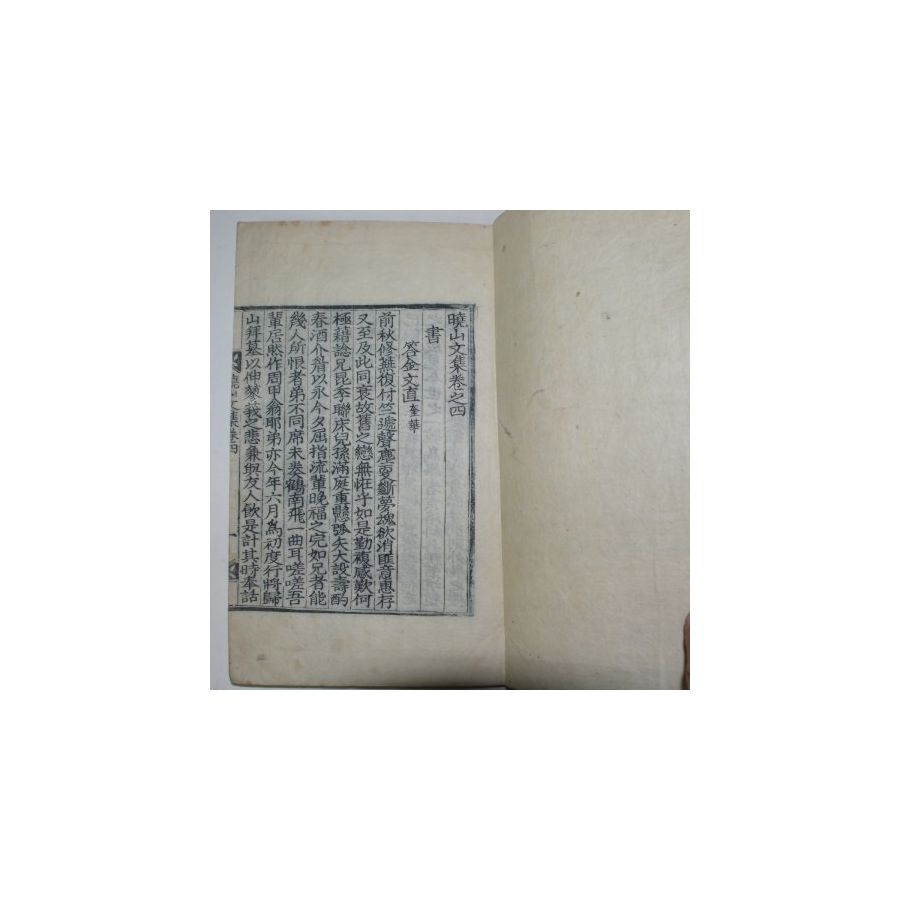 曉山文集卷之四
書
答金文直 奎華
前秋修無復付竺遞聲塵夐斷夢魂欲消匪意惠存
又至及此同衰故舊之戀無怪乎如是勤複感歎何
極藉諗兄昆季聯床兒孫滿庭重懸弧矢大設壽酌
春酒介眉以永今夕屈指流輩晚福之完如兄者能
幾人所恨者弟不同席未奏鶴南飛一曲耳嗟嗟吾
輩居然作周甲翁耶弟亦今年六月爲初度行將歸
山拜墓以伸蓼莪之悲兼與友人飮是計其時奉話
曉山文集卷四
一